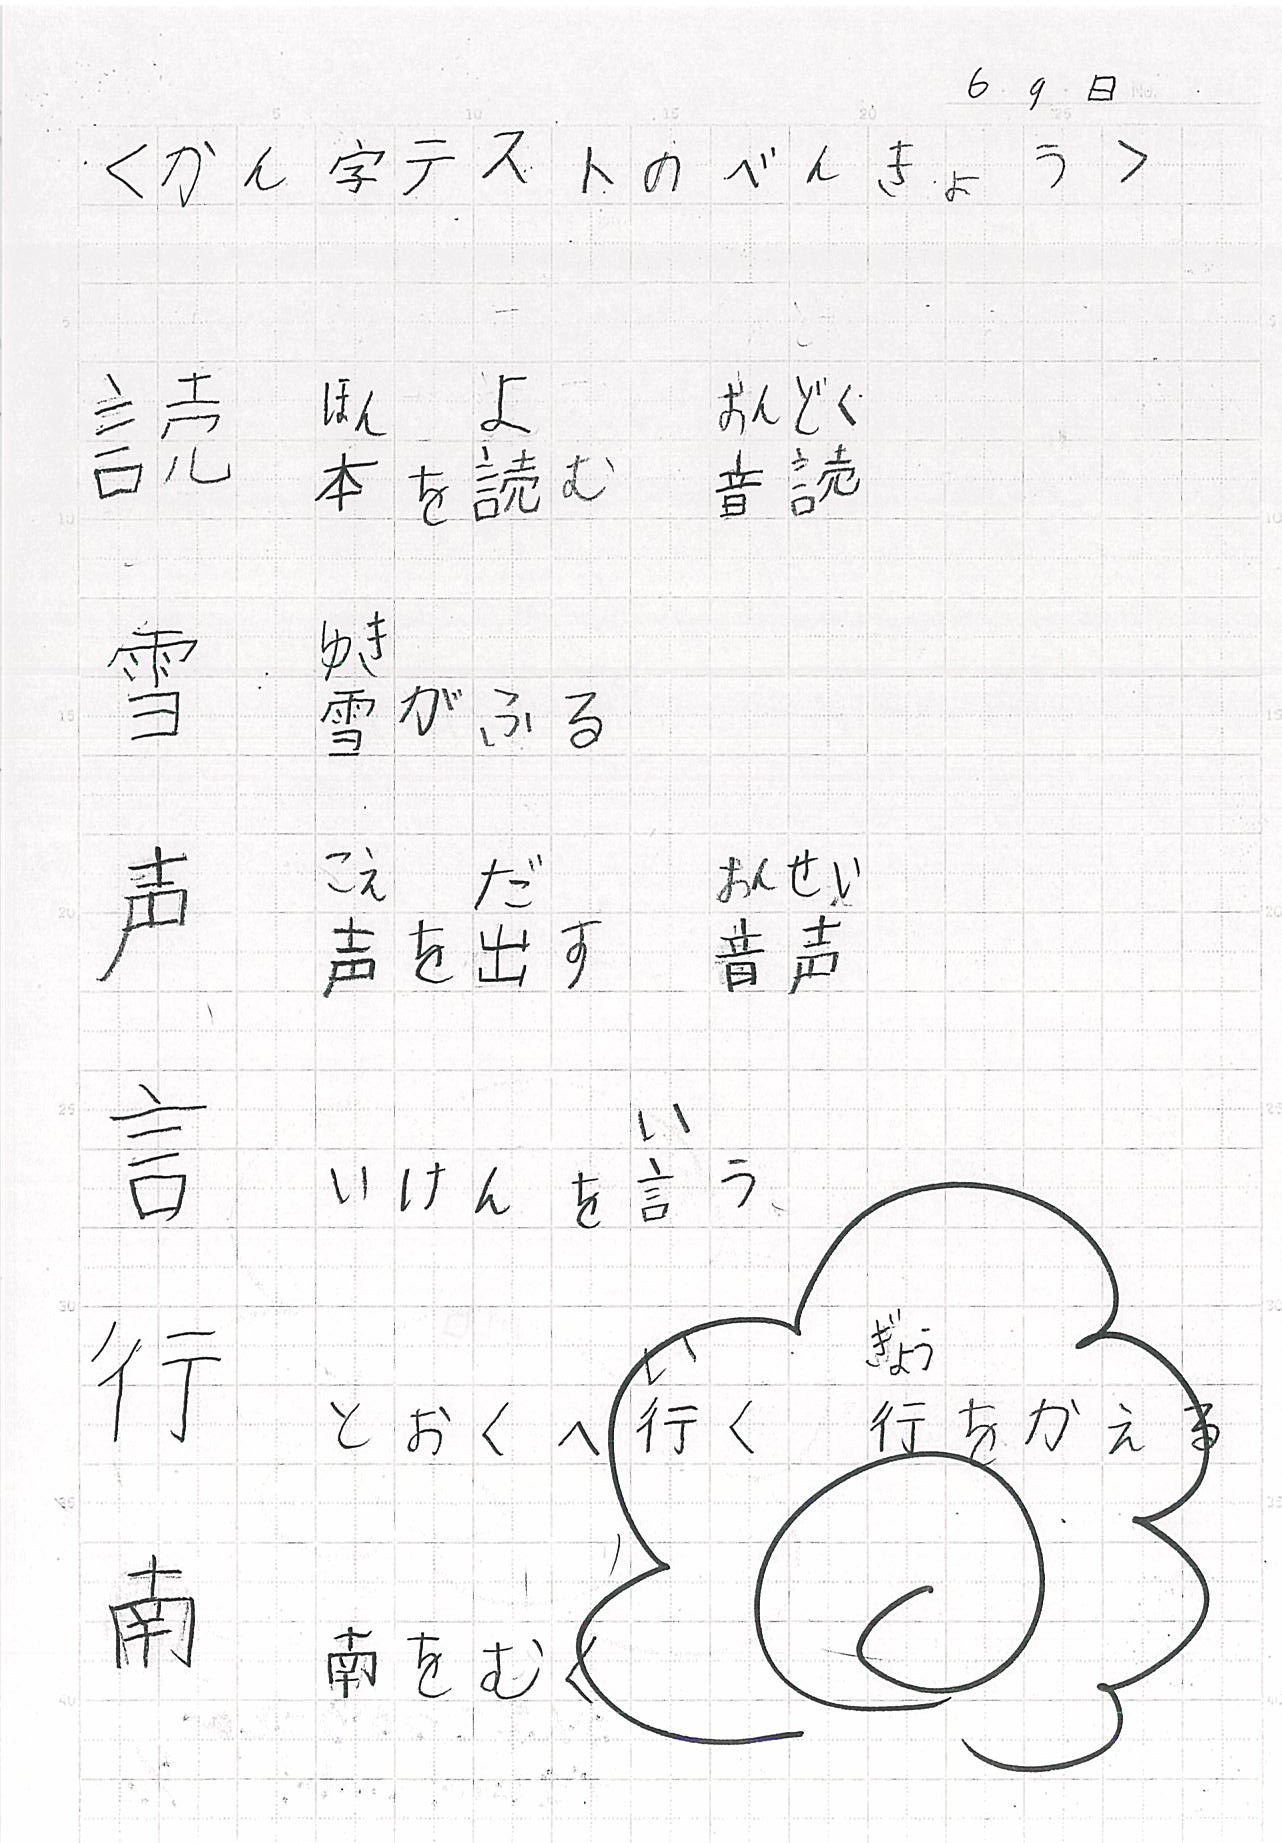 6 9 日
<かん字テストのべんきょう>
ほん よ おんどく
読 本を読む 音読
ゆき
雪 雪がふる
こえ だ おんせい
声 声を出す 音声
い
言 いけんを言う
い ぎょう
行 とおくへ行く 行をかえる
南 南をむく